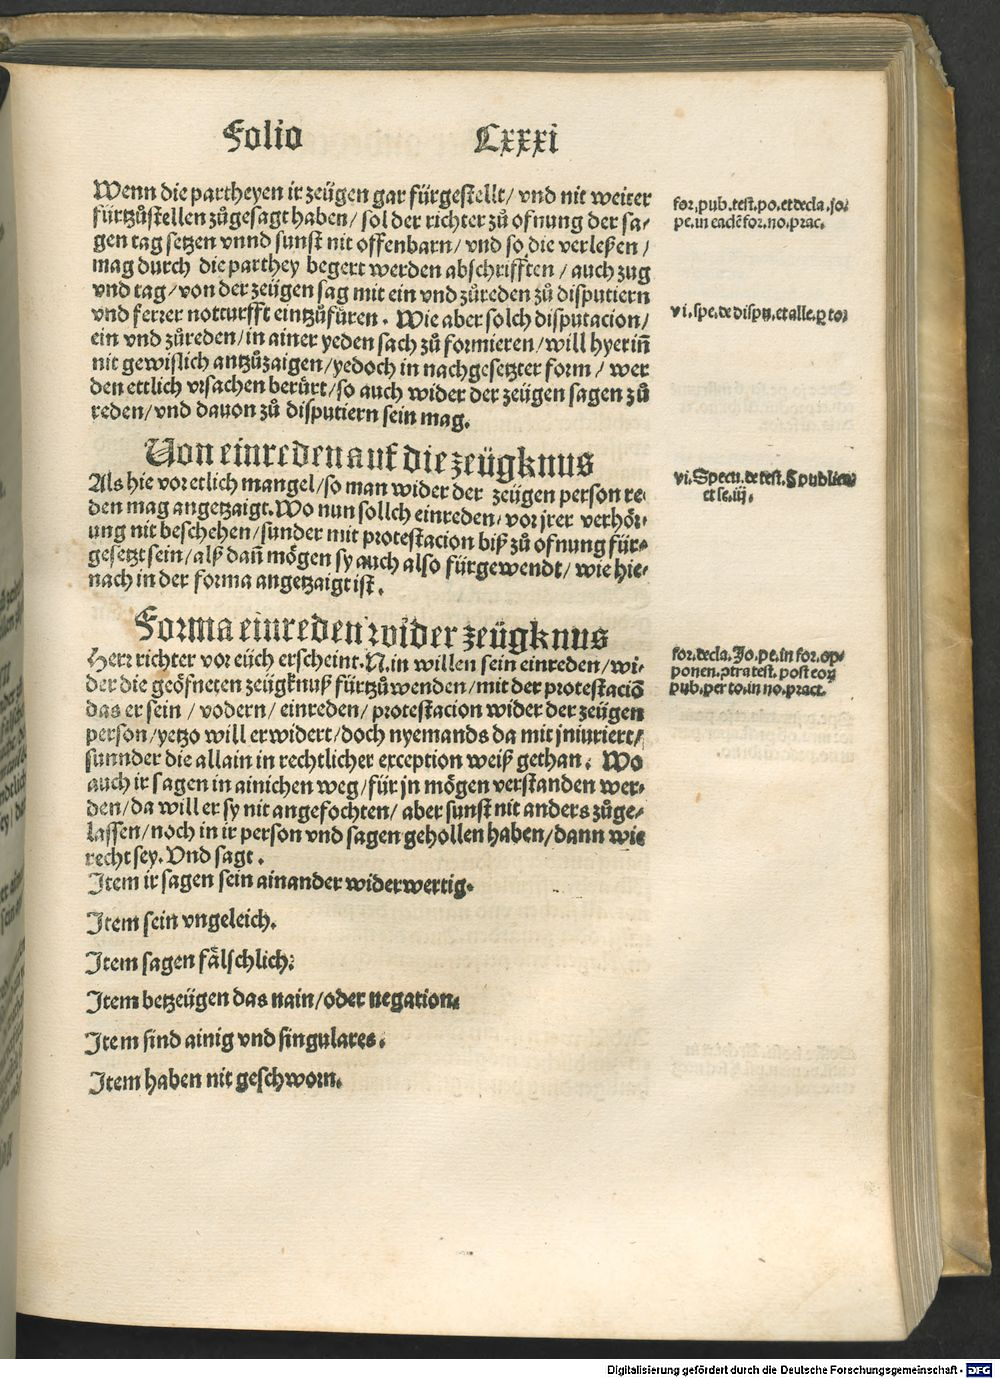 Folio Lxxxi
Wenn die partheyen ir zeügen gar fürgestellt/ vnd nit weiter
fürtzůstellen zůgesagt haben/ sol der richter zů ofnung der sa⸗
gen tag setzen vnnd sunst nit offenbarn/ vnd so die verleßen/
mag durch die parthey begert werden abschrifften/ auch zug
vnd tag/ von der zeügen sag mit ein vnd zůreden zů disputiern
vnd ferrer notturfft eintzůfüren. Wie aber solch disputacion/
ein vnd zůreden/ in ainer yeden sach zů formieren/ will hyerin̄
nit gewislich antzůzaigen/ yedoch in nachgesetzter form/ wer
den ettlich vrsachen berürt/ so auch wider der zeügen sagen zů
reden/ vnd dauon zů disputiern sein mag.
for. pub. test. po. et decla. jo.
pe. in eadē for. no. prac.
vi. spe. de disput. et alle. ꝑ to.
Von einreden auf die zeügknus
Als hie vor etlich mangel/ so man wider der zeügen person re⸗
den mag angetzaigt. Wo nun sollch einreden/ vor jrer verhör⸗
ung nit beschehen/ sunder mit protestacion biß zů ofnung für⸗
gesetzt sein/ alß dan̄ mögen sy auch also fürgewendt/ wie hie⸗
nach in der forma angetzaigt ist.
vi. Specu. de test. § publica⸗
et se. iij.
Forma einreden wider zeügknus
Herr richter vor eüch erscheint. N. in willen sein einreden/ wi⸗
der die geöfneten zeügknuß fürtzůwenden/ mit der protestaciō
das er sein/ vodern/ einreden/ protestacion wider der zeügen
person/ yetzo will erwidert/ doch nyemands da mit jniuriert/
sunnder die allain in rechtlicher exception weiß gethan. Wo
auch ir sagen in ainichen weg/ für jn mögen verstanden wer⸗
den/ da will er sy nit angefochten/ aber sunst nit anders zůge⸗
lassen/ noch in ir person vnd sagen gehollen haben/ dann wie
recht sey. Vnd sagt.
for. decla. Jo. pe. in for. op⸗
ponen. ꝯtra test. post eoꝝ
pub. per to. in no. pract.
Item ir sagen sein ainander widerwertig.
Item sein vngeleich.
Item sagen fälschlich:
Item betzeügen das nain/ oder negation.
Item sind ainig vnd singulares.
Item haben nit geschworn.
Digitalisierung gefördert durch die Deutsche Forschungsgemeinschaft - DFG